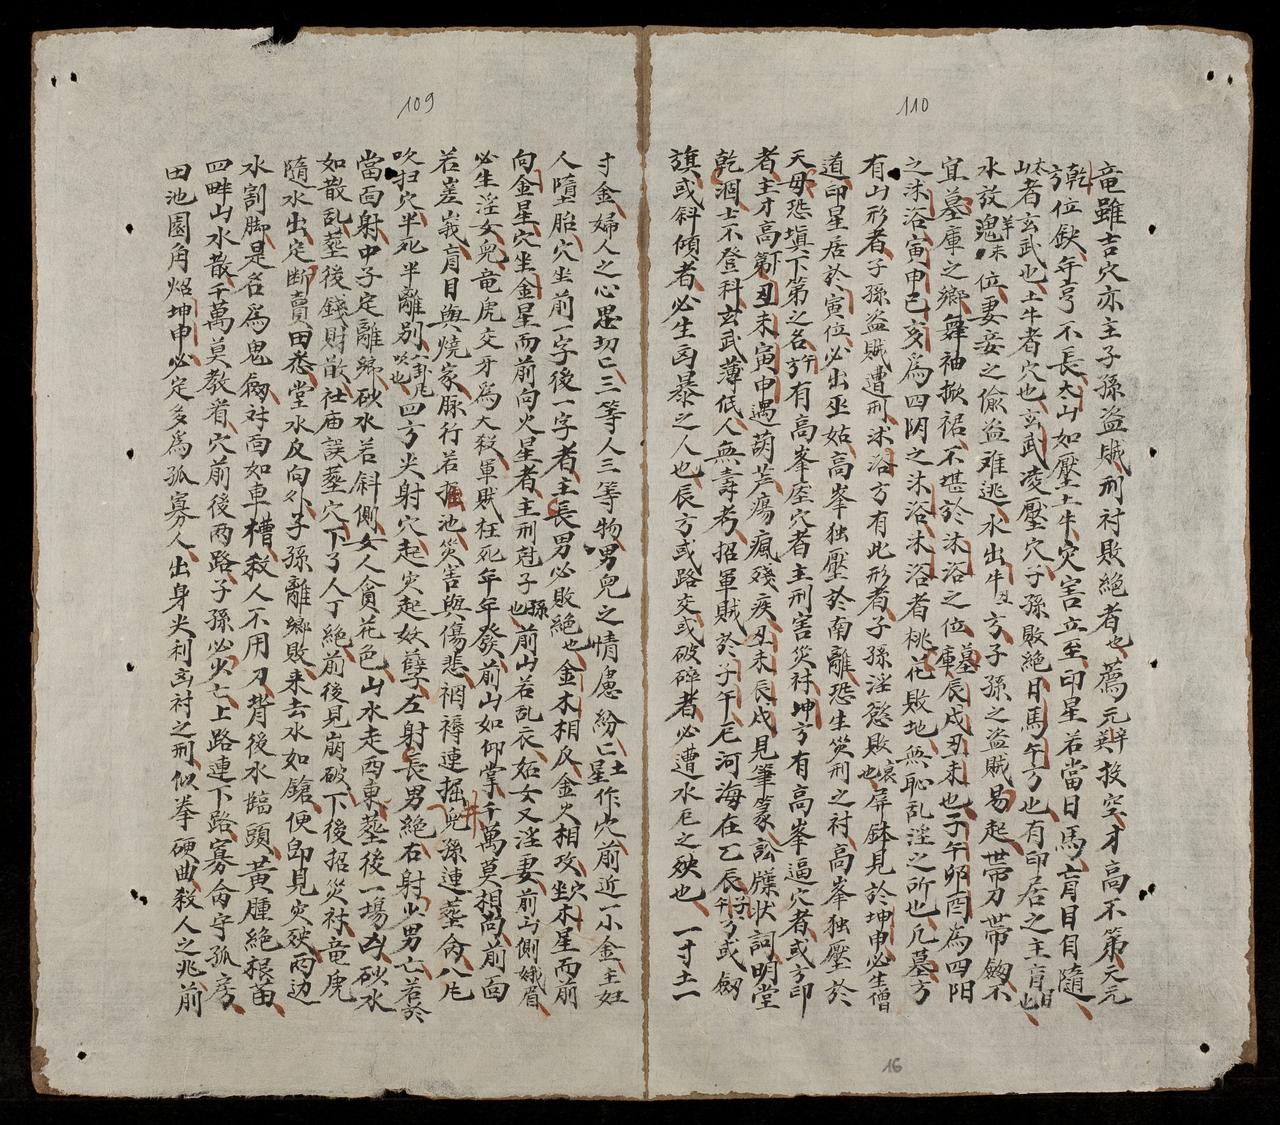 110
竜雖吉穴亦主子孫盜賊刑衬敗絕者也薦元辛投空才高不第天元
乾方位缺年亨不長太山如壓土牛灾害立至印星若當日馬盲目自隨
太山者玄武也土牛者穴也玄武凌壓穴子孫敗絕日馬午方也有印居之主盲目也
水放羊未位妻妾之偷盜难逃水出牛丑方子孫之盜賊易起带刀带劔不
宜墓庫之鄉舞袖掀裾不堪於沐浴之位墓庫辰戌丑未也子午卯酉為四阳
之沐浴寅申巳亥為四阴之沐浴沐浴者桃花敗地無恥乱淫之所也凡墓方
有山形者子孫盜賊遭刑沐浴方有此形者子孫淫慾敗哀也屏鉢見於坤申必生僧
道印星居於寅位必出巫姑高峯独壓於南離恐生災刑之衬高峯独壓於
天毋恐填下第之名午方有高峯塋穴者主刑害災衬坤方有高峯逼穴者或方印
者主才高下第丑未寅申遇葫芦瘍瘋殘疾丑未辰戌見筆篆訟牒状詞明堂
乾涸士不登科玄武薄低人無壽考招軍賊於子午厄河海在乙辰子午方或劔
旗或斜傾者必生凶暴之人也辰方或路交或破碎者必遭水厄之殃也一寸土一
16
109
寸金婦人之心思切亡三等人三等物男兒之情慮紛亡土星作穴前近一小金主妊
人墮胎穴坐前一字後一字者主長男必敗絕也金木相反金火相攻穴坐木星而前
向金星穴坐金星而前向火星者主刑尅子孫也前山若乱衣如女又淫妻前山側娥眉
必生淫女兒竜虎交牙為大殺軍賊枉死年年發前山如仰掌千萬莫相向前面
若嵳峩盲目與燒家脉行若掘池災害與傷悲裀褥連掘井兒孫連塟侖八凡
吹扫穴半死半離别八卦凡吹也四方尖射穴起灾起妖孽左射長男絕右射少男亡若於
當面射中子定離鄉砂水若斜側女人貪花色山水走西東塟後一場凶砂水
如散乱塟後錢財散社庙誤塟穴下了人丁絕前後見崩破下後招災衬竜虎
隨水出定断賣田悉堂水反向外子孫離鄉敗来去水如鎗便即見灾殃两边
水割脚是名為鬼劔衬面如車槽殺人不用刀背後水臨頭黃腫絕根苗
四畔山水散千萬莫教着穴前後两路子孫必少亡上路連下路寡侖守孤房
田池園角炤坤申必定多為孤寡人出身尖利為衬之刑似拳硬曲殺人之兆前